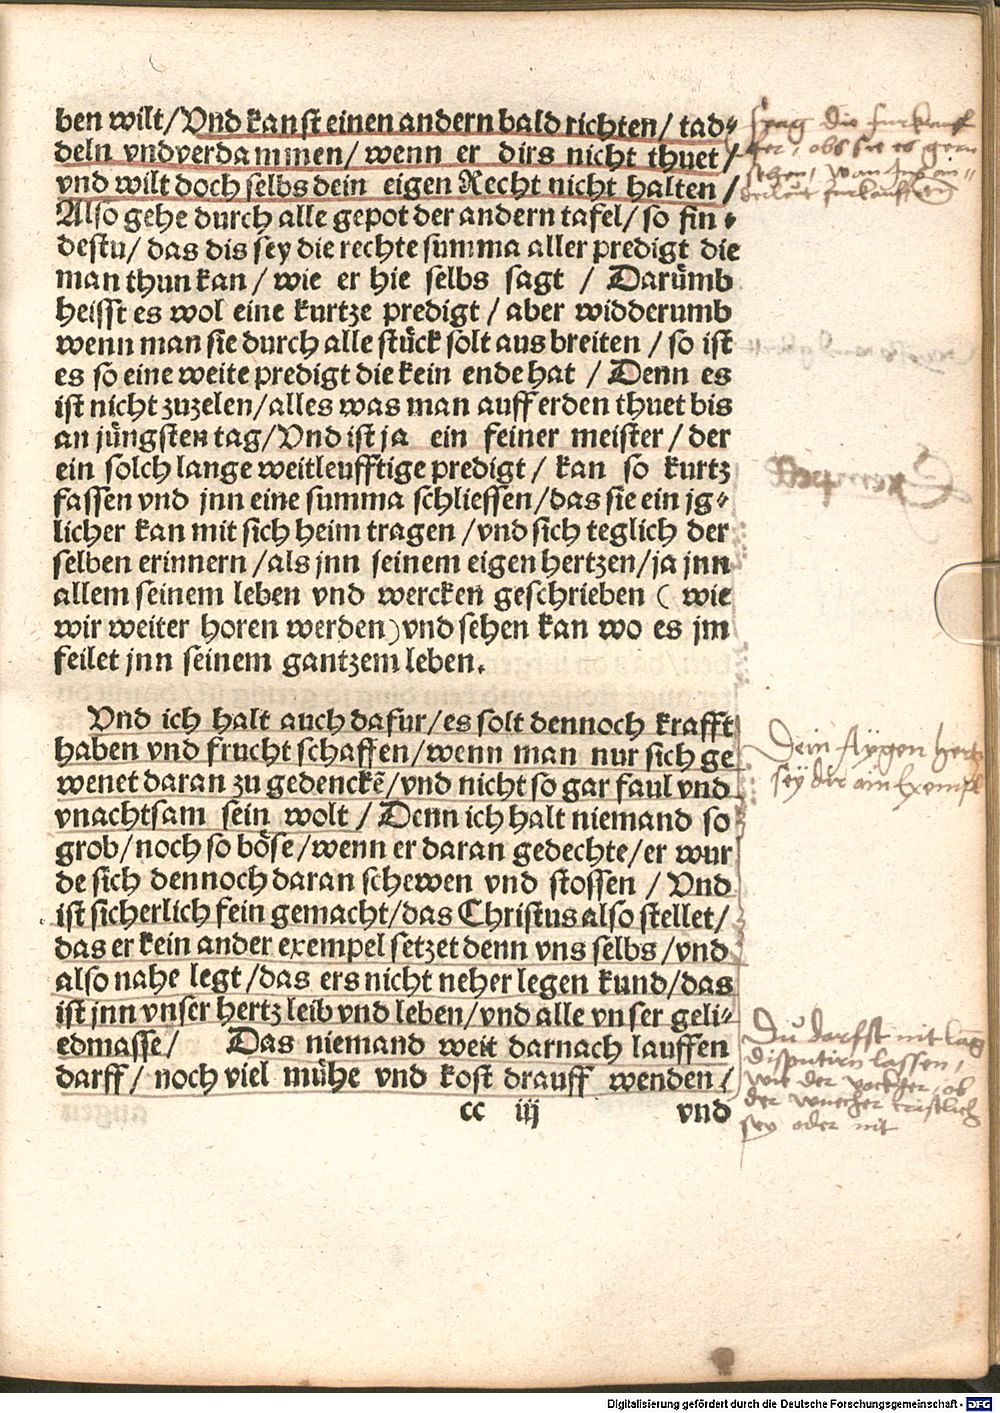 ben wilt/Vnd kanst einen andern bald richten/ tad⸗
deln vndverdammen/ wenn er dirs nicht thuet/
vnd wilt doch selbs dein eigen Recht nicht halten/
Also gehe durch alle gepot der andern tafel/ so fin⸗
destu/ das dis sey die rechte summa aller predigt die
man thun kan/ wie er hie selbs sagt / Darümb
heisst es wol eine kurtze predigt/ aber widderumb
wenn man sie durch alle stück solt aus breiten/ so ist
es so eine weite predigt die kein ende hat / Denn es
ist nicht zuzelen/alles was man auff erden thuet bis
an jüngsten tag/Vnd ist ja ein feiner meister/ der
ein solch lange weitleufftige predigt/ kan so kurtz
fassen vnd jnn eine summa schliessen/das sie ein jg⸗
licher kan mit sich heim tragen/vnd sich teglich der
selben erinnern/als jnn seinem eigen hertzen/ja jnn
allem seinem leben vnd wercken geschrieben ( wie
wir weiter horen werden)vnd sehen kan wo es jm
feilet jnn seinem gantzem leben.
Vnd ich halt auch dafur/es solt dennoch krafft
haben vnd frucht schaffen/wenn man nur sich ge
wenet daran zu gedenckẽ/vnd nicht so gar faul vnd
vnachtsam sein wolt/ Denn ich halt niemand so
grob/noch so böse/wenn er daran gedechte/er wur
de sich dennoch daran schewen vnd stossen / Vnd
ist sicherlich fein gemacht/das Christus also stellet/
das er kein ander exempel setzet denn vns selbs/vnd
also nahe legt/das ers nicht neher legen kund/das
ist jnn vnser hertz leib vnd leben/vnd alle vnser geli⸗
edmasse/ Das niemand weit darnach lauffen
darff/ noch viel mühe vnd kost drauff wenden/
cc iij vnd
frag die furkauf
fer, obs sie es gern
sehen, wan
furkauffen
Dein Aÿgen hertz
seÿ dir ain Exempl
Du darfst nit lãg
disputirn lassen,
wie der, ob
der wuecher cristlich
sey oder nit
Digitalisierung gefördert durch die Deutsche Forschungsgemeinschaft - DFG